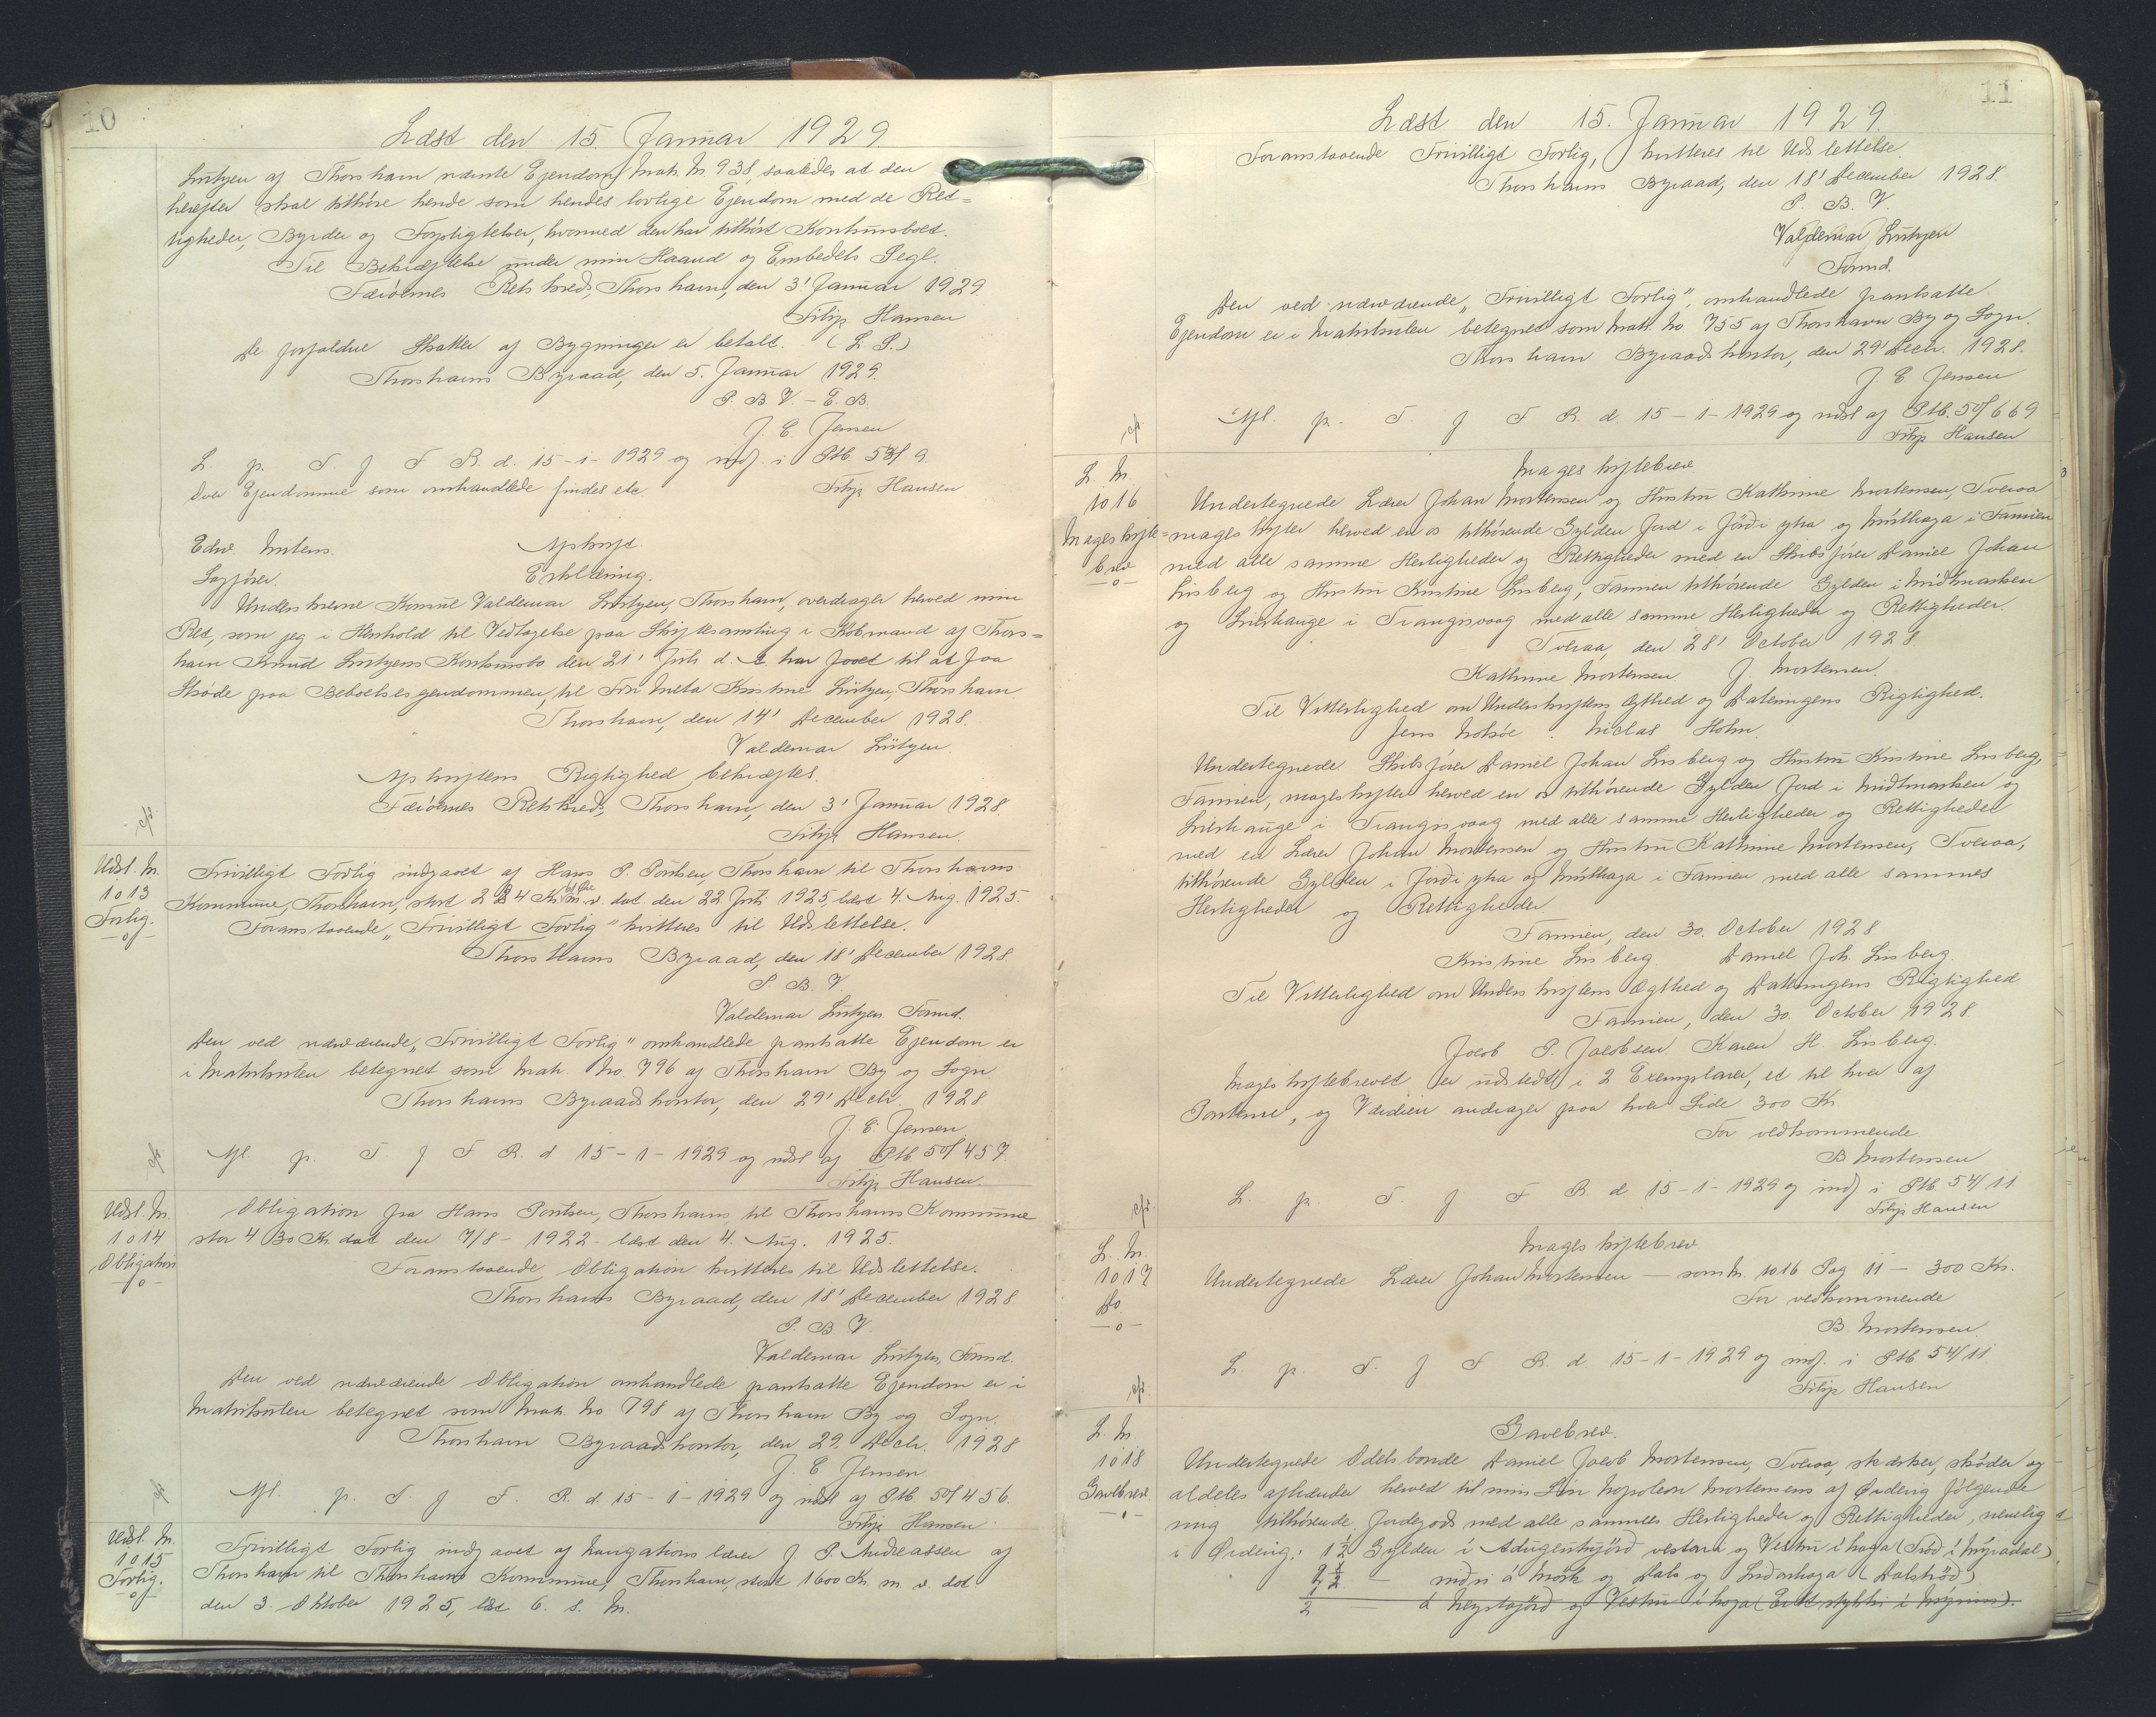 10
Læst den 15. Januar 1929
Lützen af Thorshavn nævnte Ejendom Matr. N. 938, saaledes at den
herefter skal tilhøre hende som hendes lovlige Ejendom med de Ret=
tigheder, Byrder og Forpligtelser, hvormed den har tilhørt Konkursboet.
Til Bekræftelse under min Haand og Embedets Segl.
Færöernes Retskreds, Thorshavn, den 3' Januar 1929.
Filip Hansen
De forfaldne Skatter af Bygninger er betalt. (L. S.)
Thorshavns Byraad, den 5. Januar 1929.
P. B. V. - E. B.
J. E Jensen
L. p. T. f F R. d. 15-1-1929 og indf. i Ptb. 53/9.
Over Ejendomme som omhandlede findes etc
Filip Hansen
Edw. Mitens.
Afskrift
Sagfører.
Erklæring.
Underskrevne Konsul Valdemar Lützen, Thorshavn, overdrager herved min
Ret, som jeg i Henhold til Vedtagelse paa Skiftesamling i Købmand af Thors=
havn Knud Lützens Konkursbo den 21' Juli d. A. har faaet til at faa
Skøde paa Beboelsesejendommen, til Fru Meta Kristine Lützen, Thorshavn
Thorshavn, den 14' December 1928.
Valdemar Lützen.
Afskriftens Rigtighed bekræftes.
Færöernes Retskreds, Thorshavn, den 3' Januar 1928.
Filip Hansen.
Udsl. N.
1013
Forlig.
-o-
Frivilligt Forlig indgaaet af Hans P. Poulsen, Thorshavn til Thorshavns
Kommune, Thorshavn, stort 224 Kr. m. v. dat. den 22 Juli 1925, læst 4. Aug. 1925.
Foranstaaende „Frivilligt Forlig" kvitteres til Udslettelse.
Thorshavns Byraad, den 18' December 1928
P. B. V.
Valdemar Lützen Formd.
Den ved nærværende „Frivilligt Forlig" omhandlede pantsatte Ejendom er
i Matrikulen betegnet som Matr. No. 796 af Thorshavn By og Sogn.
Thorshavns Byraadskontor, den 29' Decbr. 1928
J. E. Jensen.
Afl. p. T. f F R. d 15-1-1929 og udsl af Ptb 50/457.
Filip Hansen.
Udsl. N.
1014
Obligation
-o-
Obligation fra Hans Poulsen, Thorshavn, til Thorshavns Kommune
stor 430 Kr. dat den 7/8 - 1922 - læst den 4. Aug. 1925.
Foranstaaende Obligation kvitteres til Udslettelse.
Thorshavns Byraad, den 18' December 1928.
P. B V.
Valdemar Lützen, Formd.
Den ved nærværende Obligation omhandlede pantsatte Ejendom er i
Matrikulen betegnet som Matr. No. 798 af Thorshavn By og Sogn.
Thorshavn Byraadskontor, den 29. Decbr. 1928
J. E. Jensen
Afl. p. T. f F. R. d. 15-1-1929 og udsl af Ptb. 50/456.
Filip Hansen.
Udsl. N.
1015
Forlig.
-o-
Frivilligt Forlig indgaaet af Navigations lærer J. P. Andreassen af
Thorshavn til Thorshavns Kommune, Thorshavn, stort 1600 Kr. m. v. dat
den 3. Oktober 1925, læst 6. s. M.
11
Læst den 15. Januar 1929.
Foranstaaende Frivilligt Forlig, kvitteres til Udslettelse.
Thorshavns Byraad, den 18' December 1928.
P. B. V.
Valdemar Lützen
Formd.
Den ved nærværende „Frivilligt Forlig" omhandlede pantsatte
Ejendom er i Matrikulen betegnet som Matr. No. 755 af Thorshavn By og Sogn.
Thorshavn Byraadskontor, den 29' Decbr. 1928.
J. E Jensen
Afl. p. T. f F R. d. 15-1-1929 og udsl af Ptb. 50/669
Filip Hansen
L. N.
1016
Mageskifte=
brev
-o-
Mageskiftebrev
Undertegnede Lærer Johan Mortensen og Hustru Kathrine Mortensen, Tveraa
mageskifter herved en os tilhørende Gylden Jord i Jörði ytra og Múlhaga i Famien
med alle samme Herligheder og Rettigheder med en Skibsfører Daniel Johan
Lisberg og Hustru Kristine Lisberg, Famien tilhørende Gylden i Miðmarken
og Lierhauge i Trangisvaag med alle samme Herligheder og Rettigheder.
Tveraa, den 28' October 1928
Kathrine Mortensen. J. Mortensen.
Til Vitterlighed om Underskriftens Ægthed og Dateringens Rigtighed.
Jens Nolsøe. Niclas Holm.
Undertegnede Skibsfører Daniel Johan Lisberg og Hustru Kristine Lisberg,
Famien, mageskifter herved en os tilhørende Gylden Jord i Midtmarken og
Lierhauge i Trangisvaag med alle samme Herligheder og Rettigheder
med en Lærer Johan Mortensen og Hustru Kathrine Mortensen, Tveraa,
tilhørende Gylden i Jörði ytra og Múlhaga i Famien med alle sammes
Herligheder og Rettigheder.
Famien, den 30. October 1928
Kristine Lisberg. Daniel Joh. Lisberg.
Til Vitterlighed om Underskriftens Ægthed og Dateringens Rigtighed
Famien, den 30. October 1928
Jacob P. Jacobsen. Karen H. Lisberg.
Mageskiftebrevet er udstedt i 2 Exemplarer, et til hver af
Parterne, og Værdien andrager paa hver Side 300 Kr.
For vedkommende.
B Mortensen
L. p. T. f F R. d. 15-1-1929 og indf i Ptb 54/11
Filip Hansen
L. N.
1017
Do.
-o-
Mageskiftebrev
Undertegnede Lærer Johan Mortensen - som N. 1016 Pag 11 - 300 Kr.
For vedkommende
B. Mortensen.
L. p. T. f F R. d. 15-1-1929 og indf. i Ptb. 54/11
Filip Hansen
L. N.
1018
Gavebrev.
-o-
Gavebrev.
Undertegnede Odelsbonde Daniel Jacob Mortensen, Tveraa, skænker, skøder og
aldeles afhænder herved til min Søn Napoleon Mortensens af Ørderig følgende
mig tilhørende Jordegods med alle sammes Herligheder og Rettigheder, nemlig
i Ørderig: 1½ Gylden i vestara og Vestur í haga (Trøð í Mýradal)
2½ - niðri á Mørk og Dals og Liðarhaga (Dalstrøð)
½ - á Neystajörð og Vestur í haga (Eitt stykki í Mýrini).